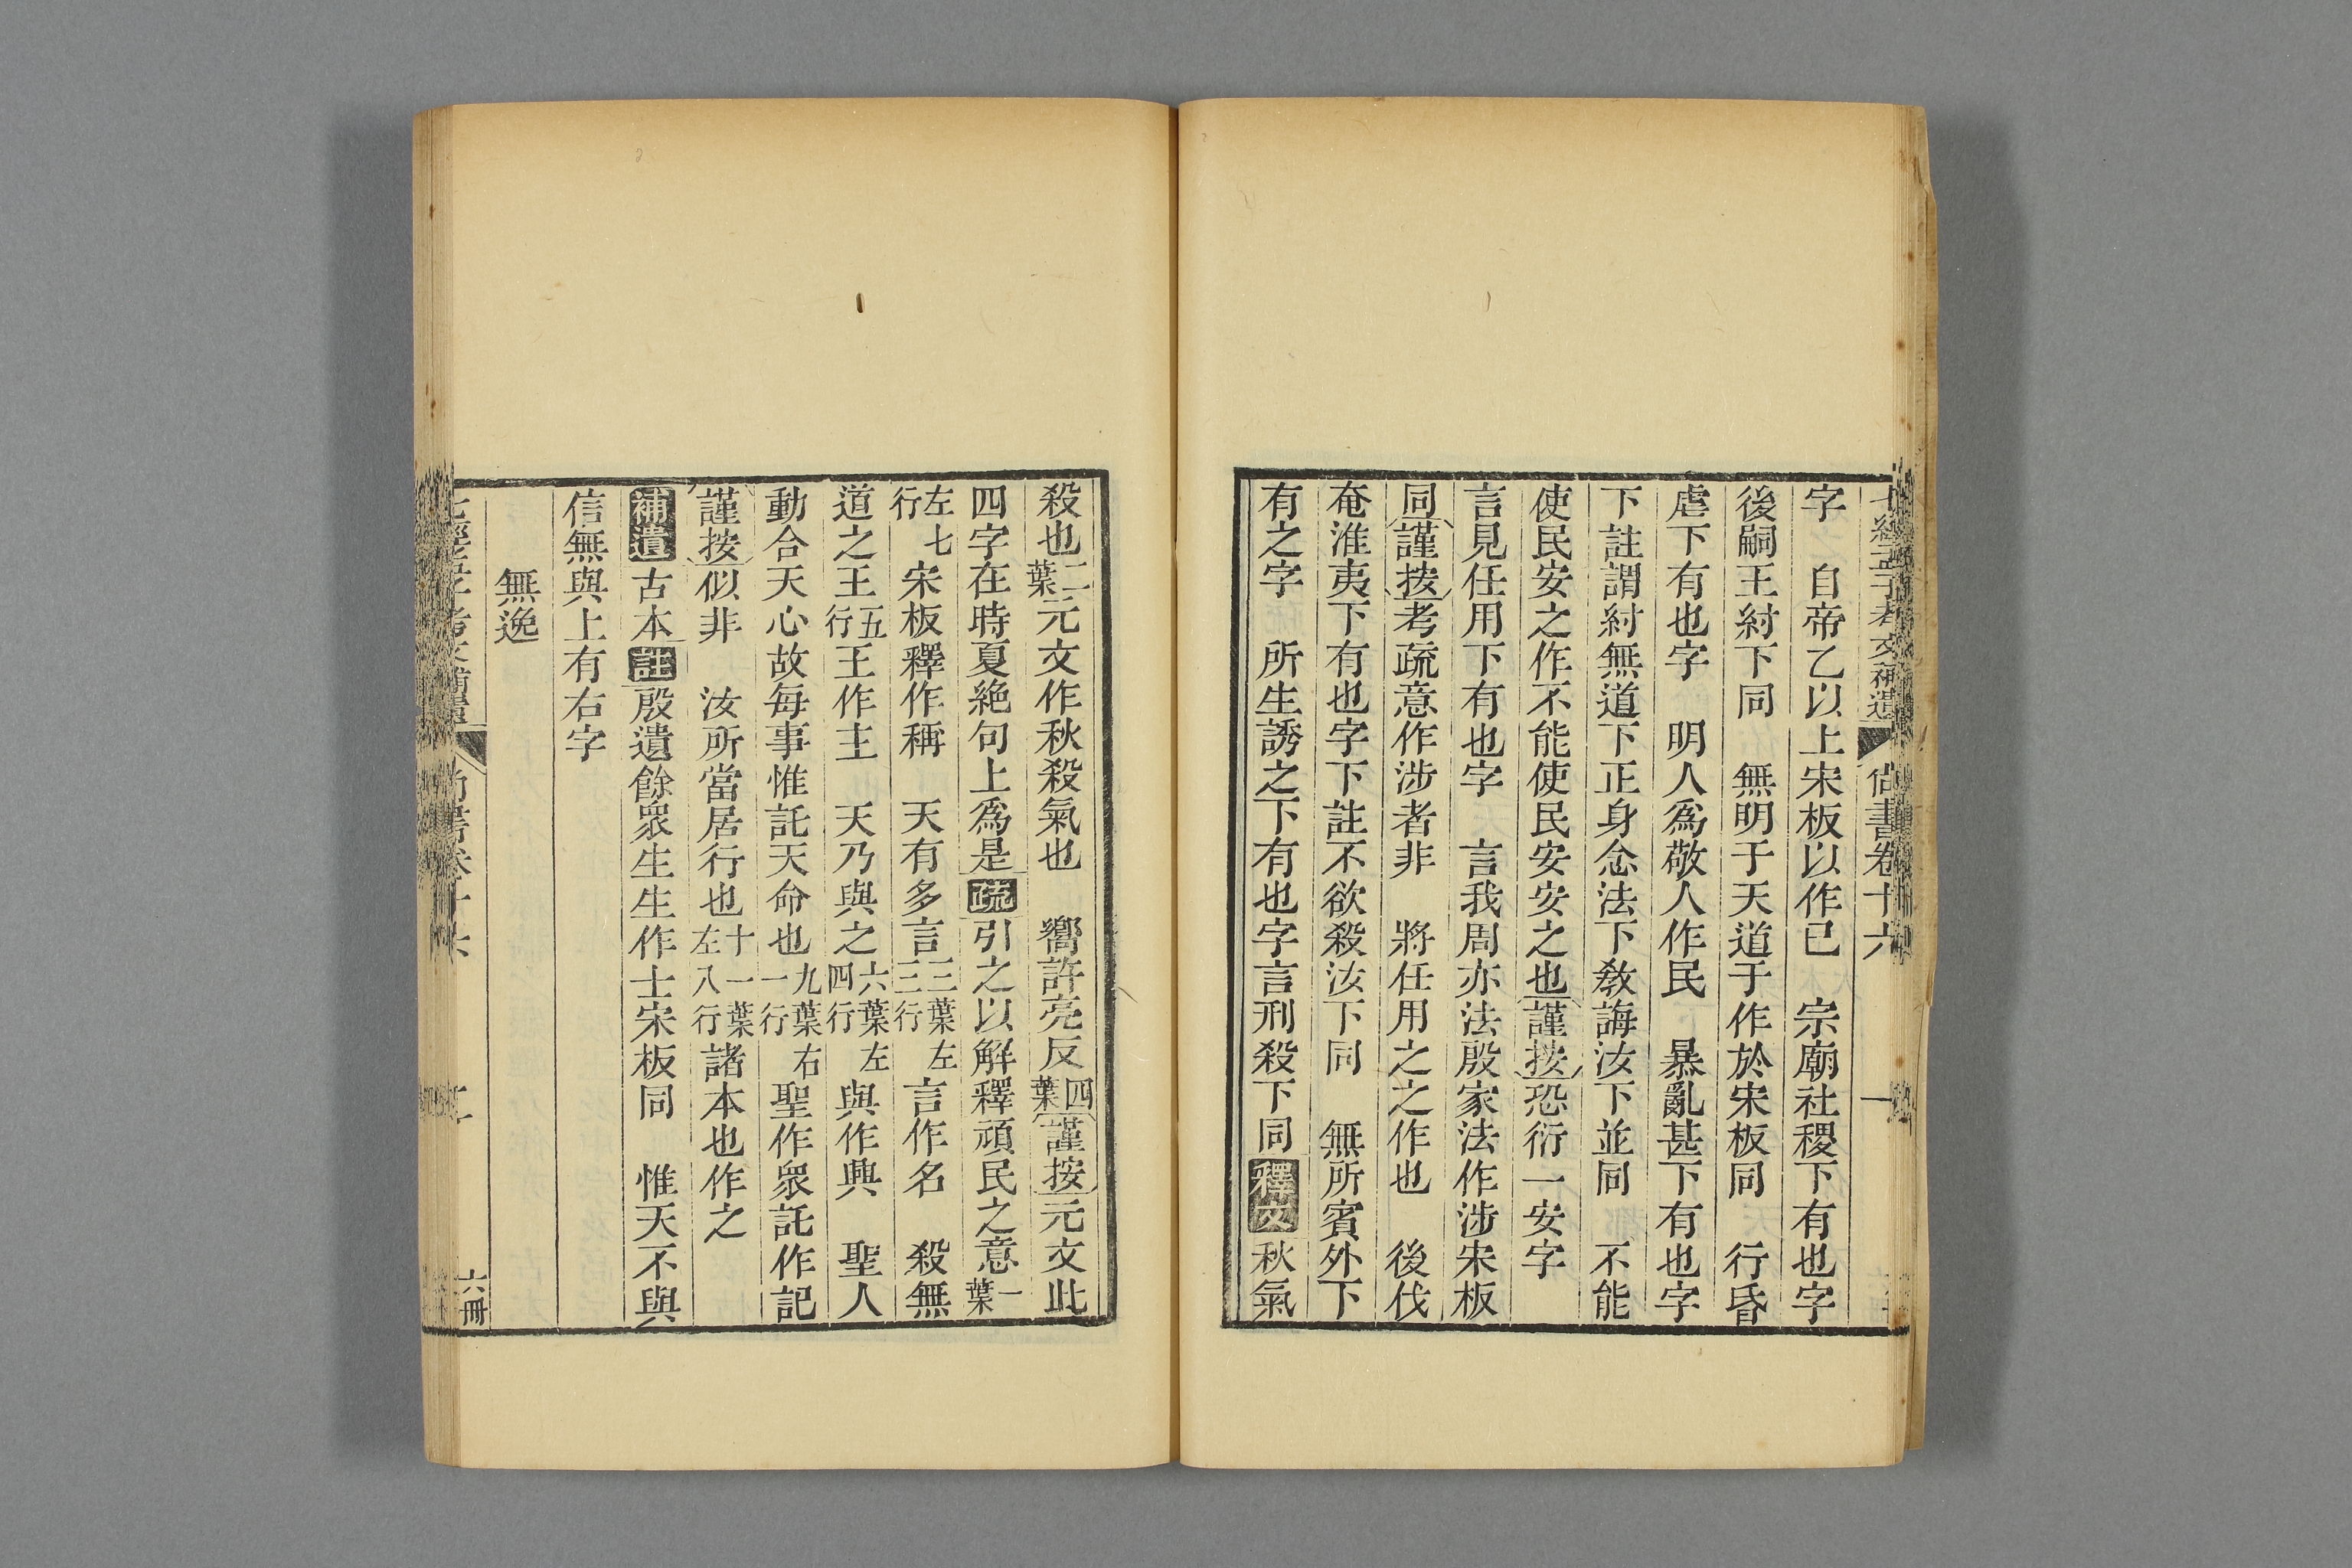 七經孟子考文補遺 尚書卷十六 一
字 自帝乙以上宋板以作已 宗廟社稷下有也字
後嗣王紂下同 無明于天道于作於宋板同 行昏
虐下有也字 明人爲敬人作民 暴亂甚下有也字
下註謂紂無道下正身念法下敎誨汝下並同 不能
使民安之作不能使民安安之也謹按恐衍一安字
言見任用下有也字 言我周亦法殷家法作涉宋板
同謹按考疏意作涉者非 將任用之之作也 後伐
奄淮夷下有也字下註不欲殺汝下同 無所賓外下
有之字 所生誘之下有也字言刑殺下同釋文秋氣
殺也二葉元文作秋殺氣也 嚮許亮反四葉謹按元文此
四字在時夏絶句上爲是疏引之以解釋頑民之意一葉
左七行宋板釋作稱 天有多言三葉左三行言作名 殺無
道之王五行王作主 天乃與之六葉左四行與作興 聖人
動合天心故每事惟託天命也九葉右一行聖作衆託作記
謹按似非 汝所當居行也十一葉左八行諸本也作之
補遺古本註殷遺餘衆生生作士宋板同 惟天不與
信無與上有右字
無逸
七經孟子考文補遺 尚書卷十六 二 六冊